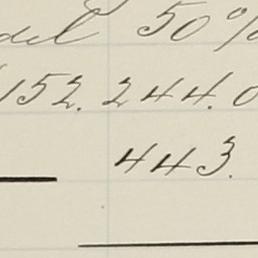 del 50%
152. 244.0
443.